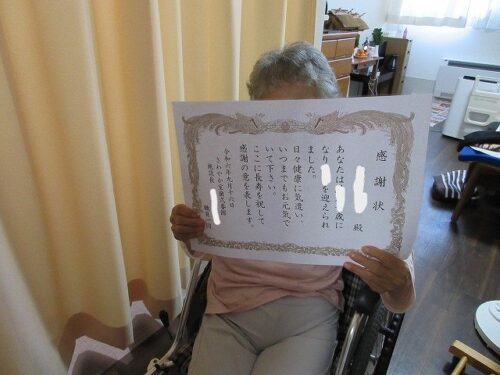 感謝状
殿
あなたは 歳に
なり を迎えられ
ました。
日々健康に気遣い、
いつまでもお元気で
いて下さい。
ここに長寿を祝して
感謝の意を表します。
令和六年九月十六日
さわやか
施設長